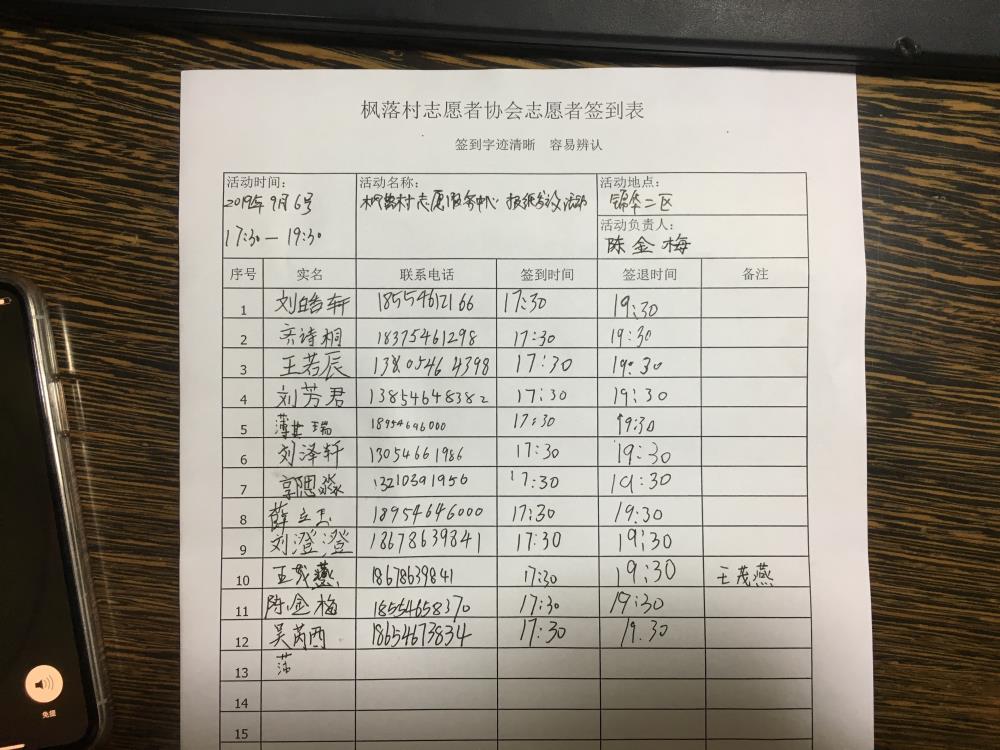 枫落村志愿者协会志愿者签到表
签到字迹清晰 容易辨认
活动时间: 活动名称: 活动地点:
2019年9月6号 枫落村志愿服务中心 报纸分发活动 锦华二区
17:30—19:30 活动负责人:
陈金梅
序号 实名 联系电话 签到时间 签退时间 备注
1 刘皓轩 18554612166 17:30 19:30
2 诗桐 18375461298 17:30 19:30
3 王若辰 13805464398 17:30 19:30
4 刘芳君 13854648382 17:30 19:30
5 薄其瑞 18954646000 17:30 19:30
6 刘泽轩 13054661986 17:30 19:30
7 郭思淼 13210391956 17:30 19:30
8 薛立 18954646000 17:30 19:30
9 刘澄澄 18678639841 17:30 19:30
10 王茂燕 18678639841 17:30 19:30 王茂燕
11 陈金梅 18554658370 17:30 19:30
12 吴芮西 18654673834 17:30 19.30
13
14
15
免提